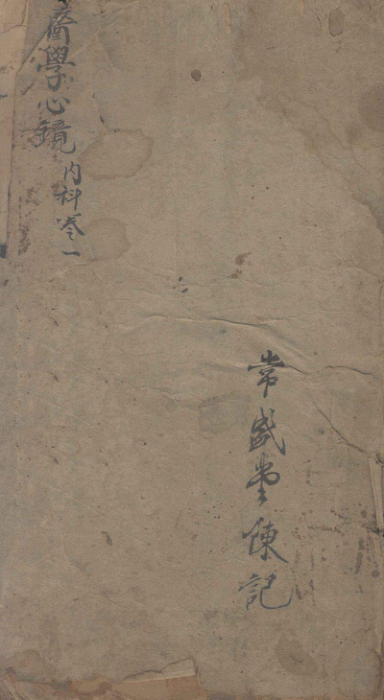 學心鏡
內科卷一
常盛堂陳記